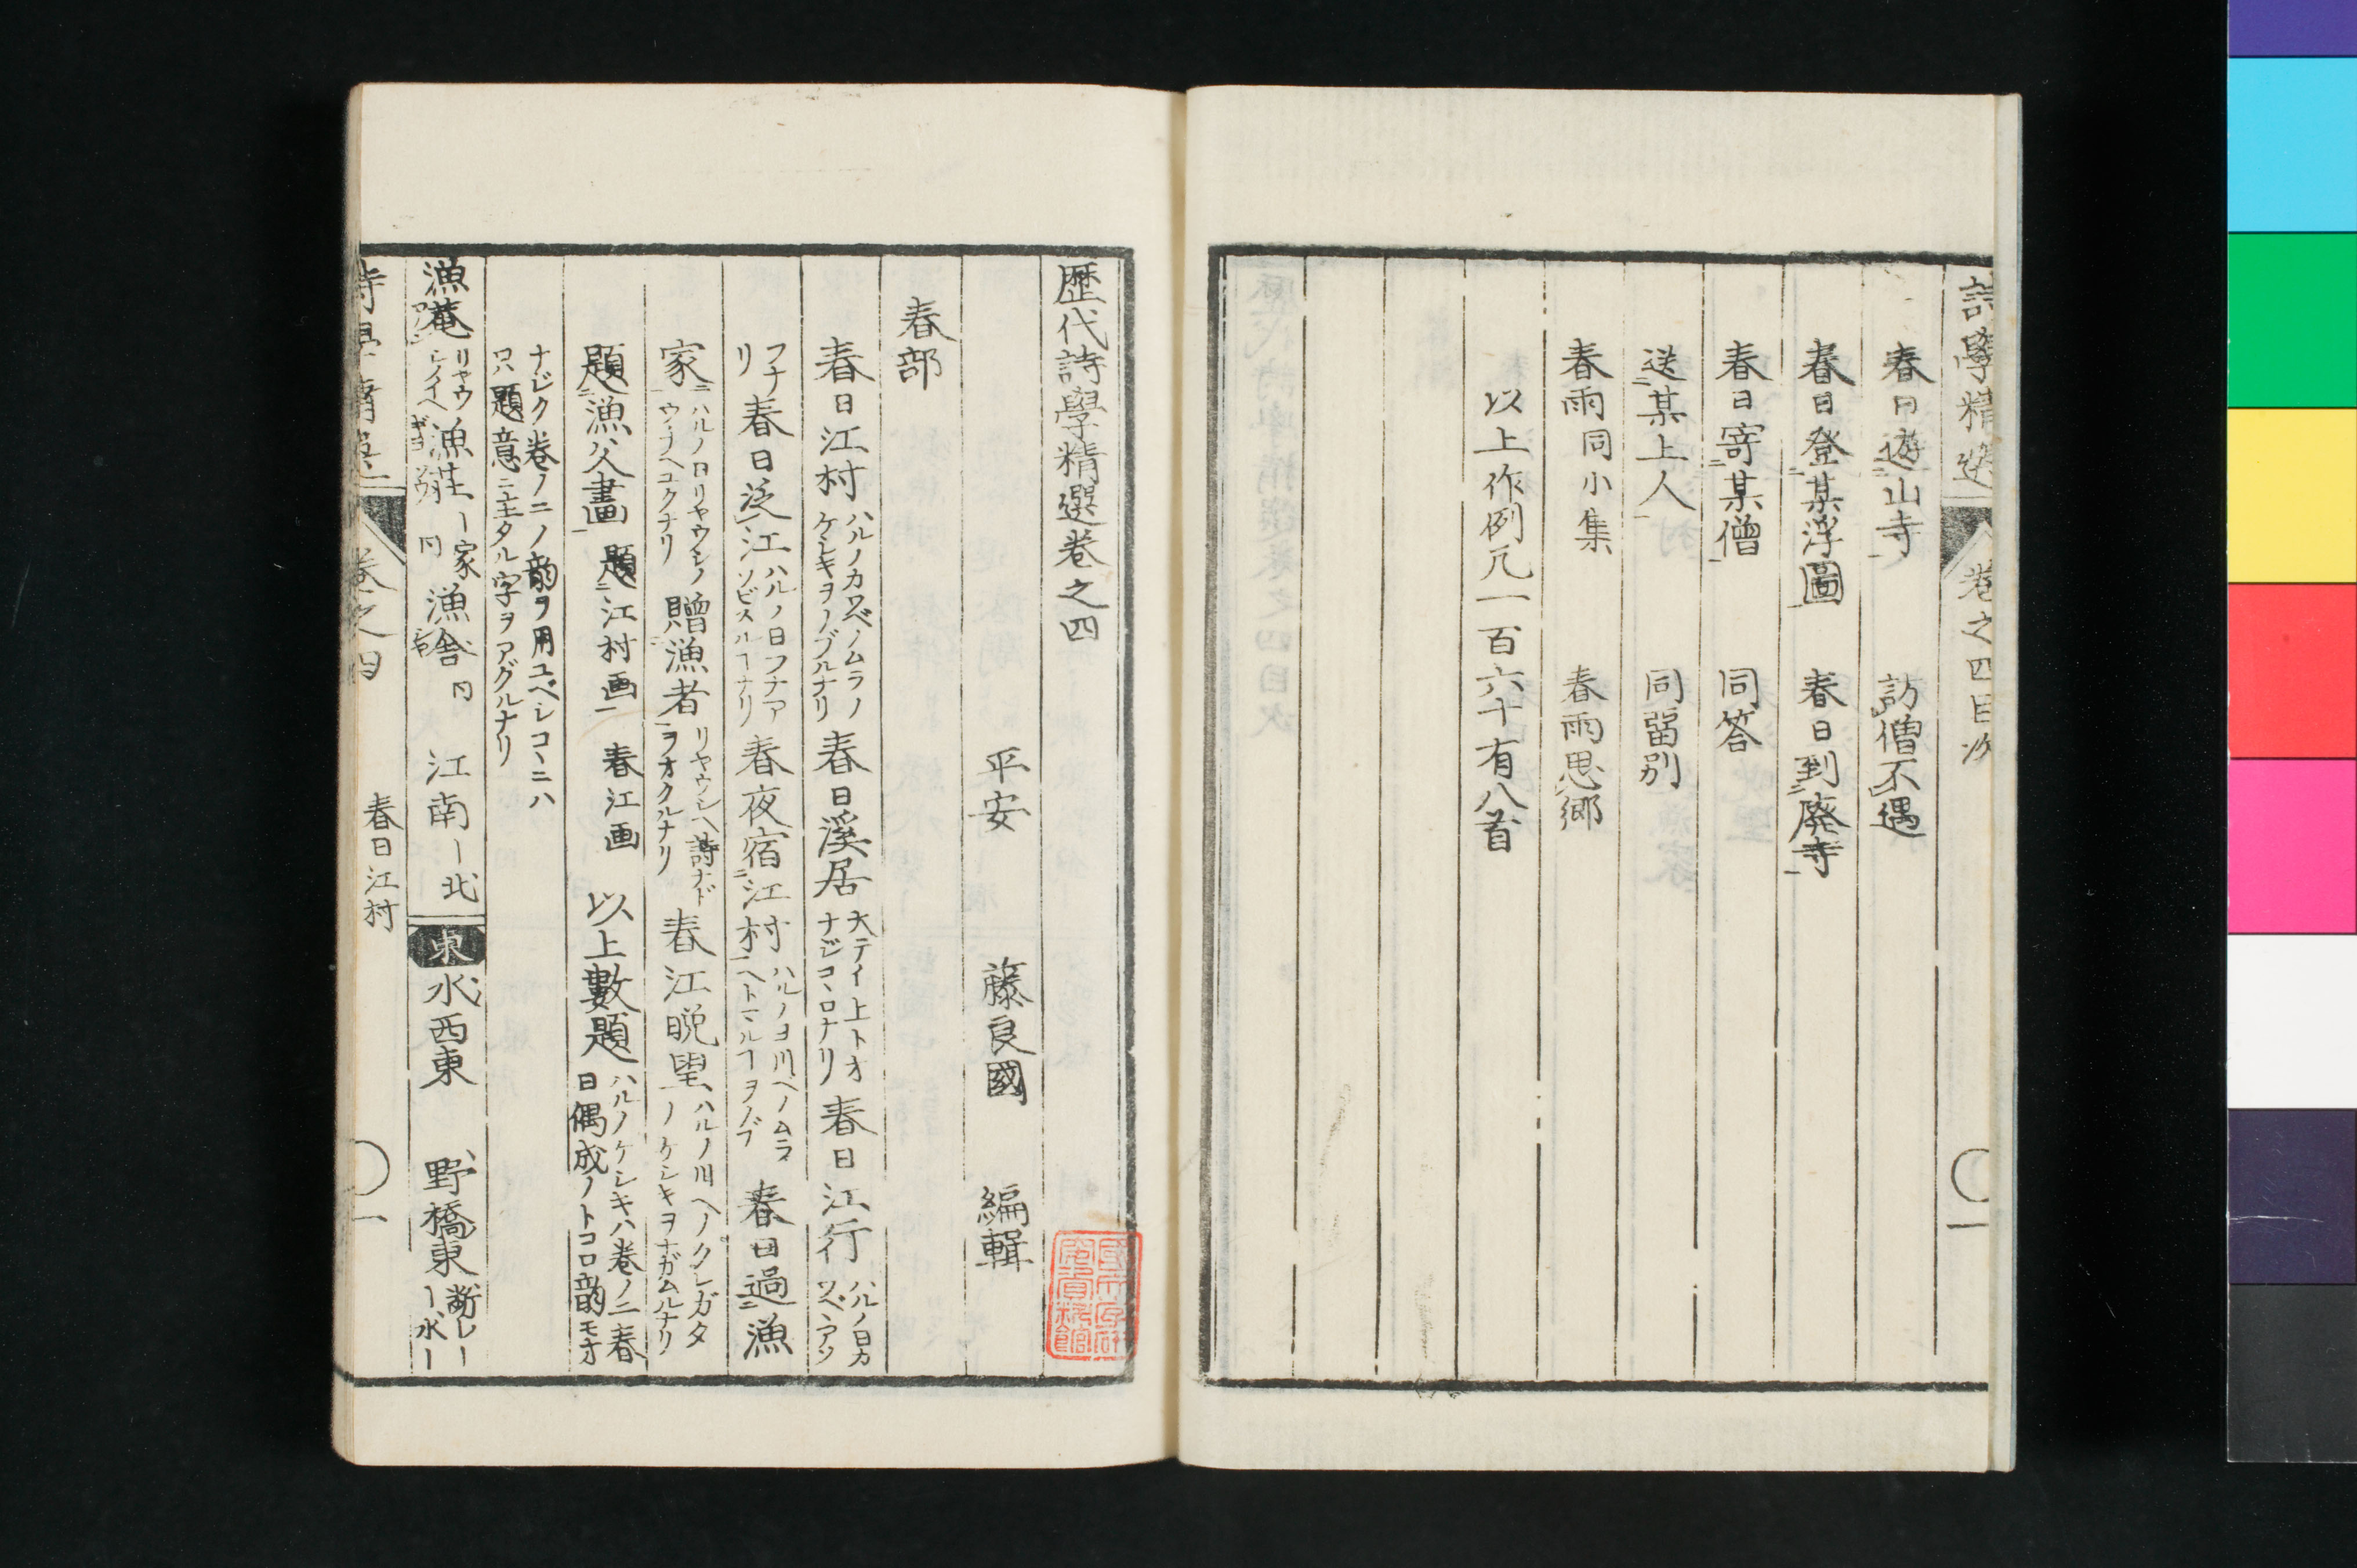 詩學精選 卷之四目次 一
春日遊山寺 訪僧不遇
春日登某浮圖 春日到廢寺
春日寄某僧 同答
送某上人 同留別
春雨同小集 春雨思鄉
以上作例凡一百六十有八首
歷代詩學精選卷之四
平安 藤良國 編輯
春部
春日江村 ハルノカワベノムラノケシキヲノブルナリ 春日溪居 大テイ上トオナジコヽロナリ 春日江行 ハルノ日カワベヘアソ
フナリ 春日泛江 ハルノ日フナアソビスルヿナリ 春夜宿江村 ハルノヨ川ベノムラヘトマルヿヲノブ 春日過漁
家 ハルノ日リヤウシノウチヘユクナリ 贈漁者 リヤウシヘ詩ナドヲオクルナリ 春江晚望 ハルノ川ヘノクレガタノケシキヲナガムルナリ
題漁父畫 題江村画 春江画 以上數題 ハルノケシキハ卷ノ二春日偶成ノトコロ韵モオ
ナジク卷ノ二ノ韵ヲ用ユベシコヽニハ
只題意ニ主タル字ヲアグルナリ
漁菴 リヤウシノイヘ 漁莊 ー家 同 漁舍 同 江南ー北 東 水西東 野橋東
詩學精選 卷之四 春日江村 一